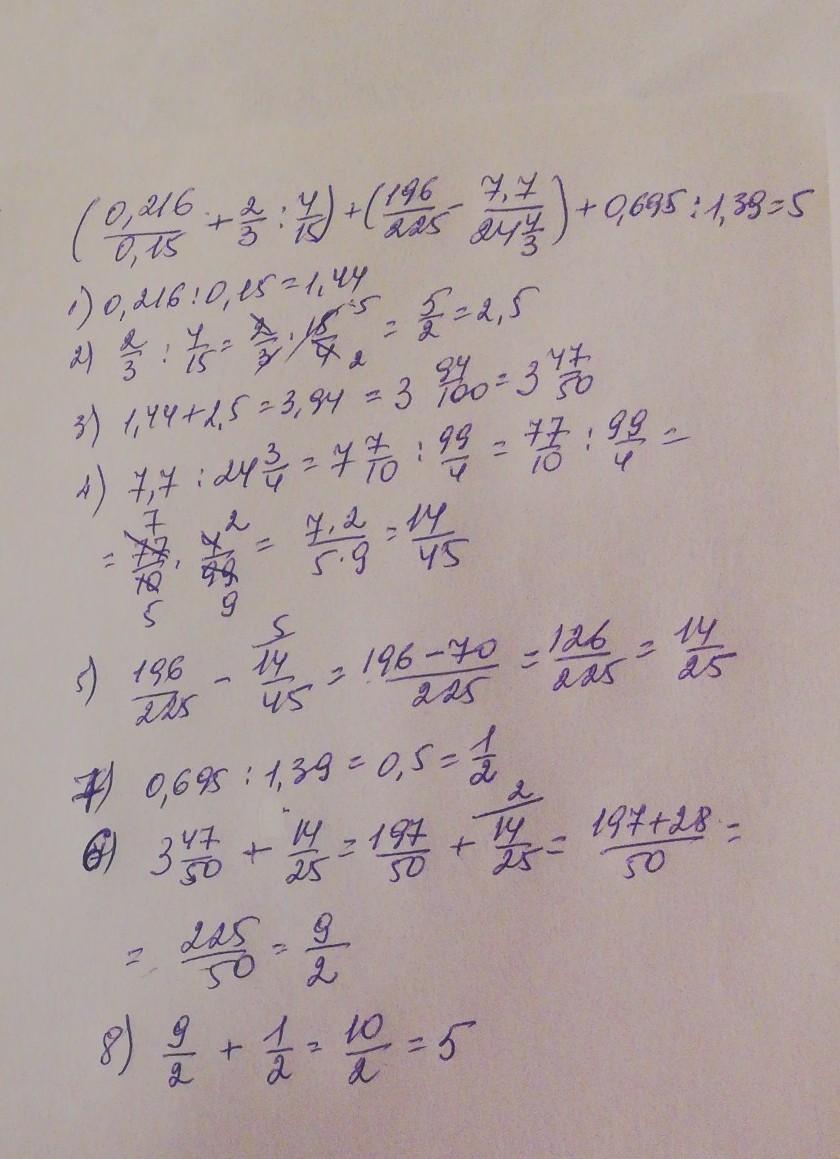 (0,216/0,15 + 2/3 : 4/15) + (196/225 - 7,7/24 4/3) + 0,695 : 1,39 = 5
1) 0,216 : 0,15 = 1,44
2) 2/3 : 4/15 = 2/3 · 15/4 5 2 = 5/2 = 2,5
3) 1,44 + 2,5 = 3,94 = 3 94/100 = 3 47/50
4) 7,7 : 24 3/4 = 7 7/10 : 99/4 = 77/10 : 99/4 =
= 7 77/10 5 · 4 2/99 9 = 7·2/5·9 = 14/45
5) 196/225 - 5 14/45 = 196-70/225 = 126/225 = 14/25
7) 0,695 : 1,39 = 0,5 = 1/2
6) 3 47/50 + 14/25 = 197/50 + 2 14/25 = 197+28/50 =
= 225/50 = 9/2
8) 9/2 + 1/2 = 10/2 = 5